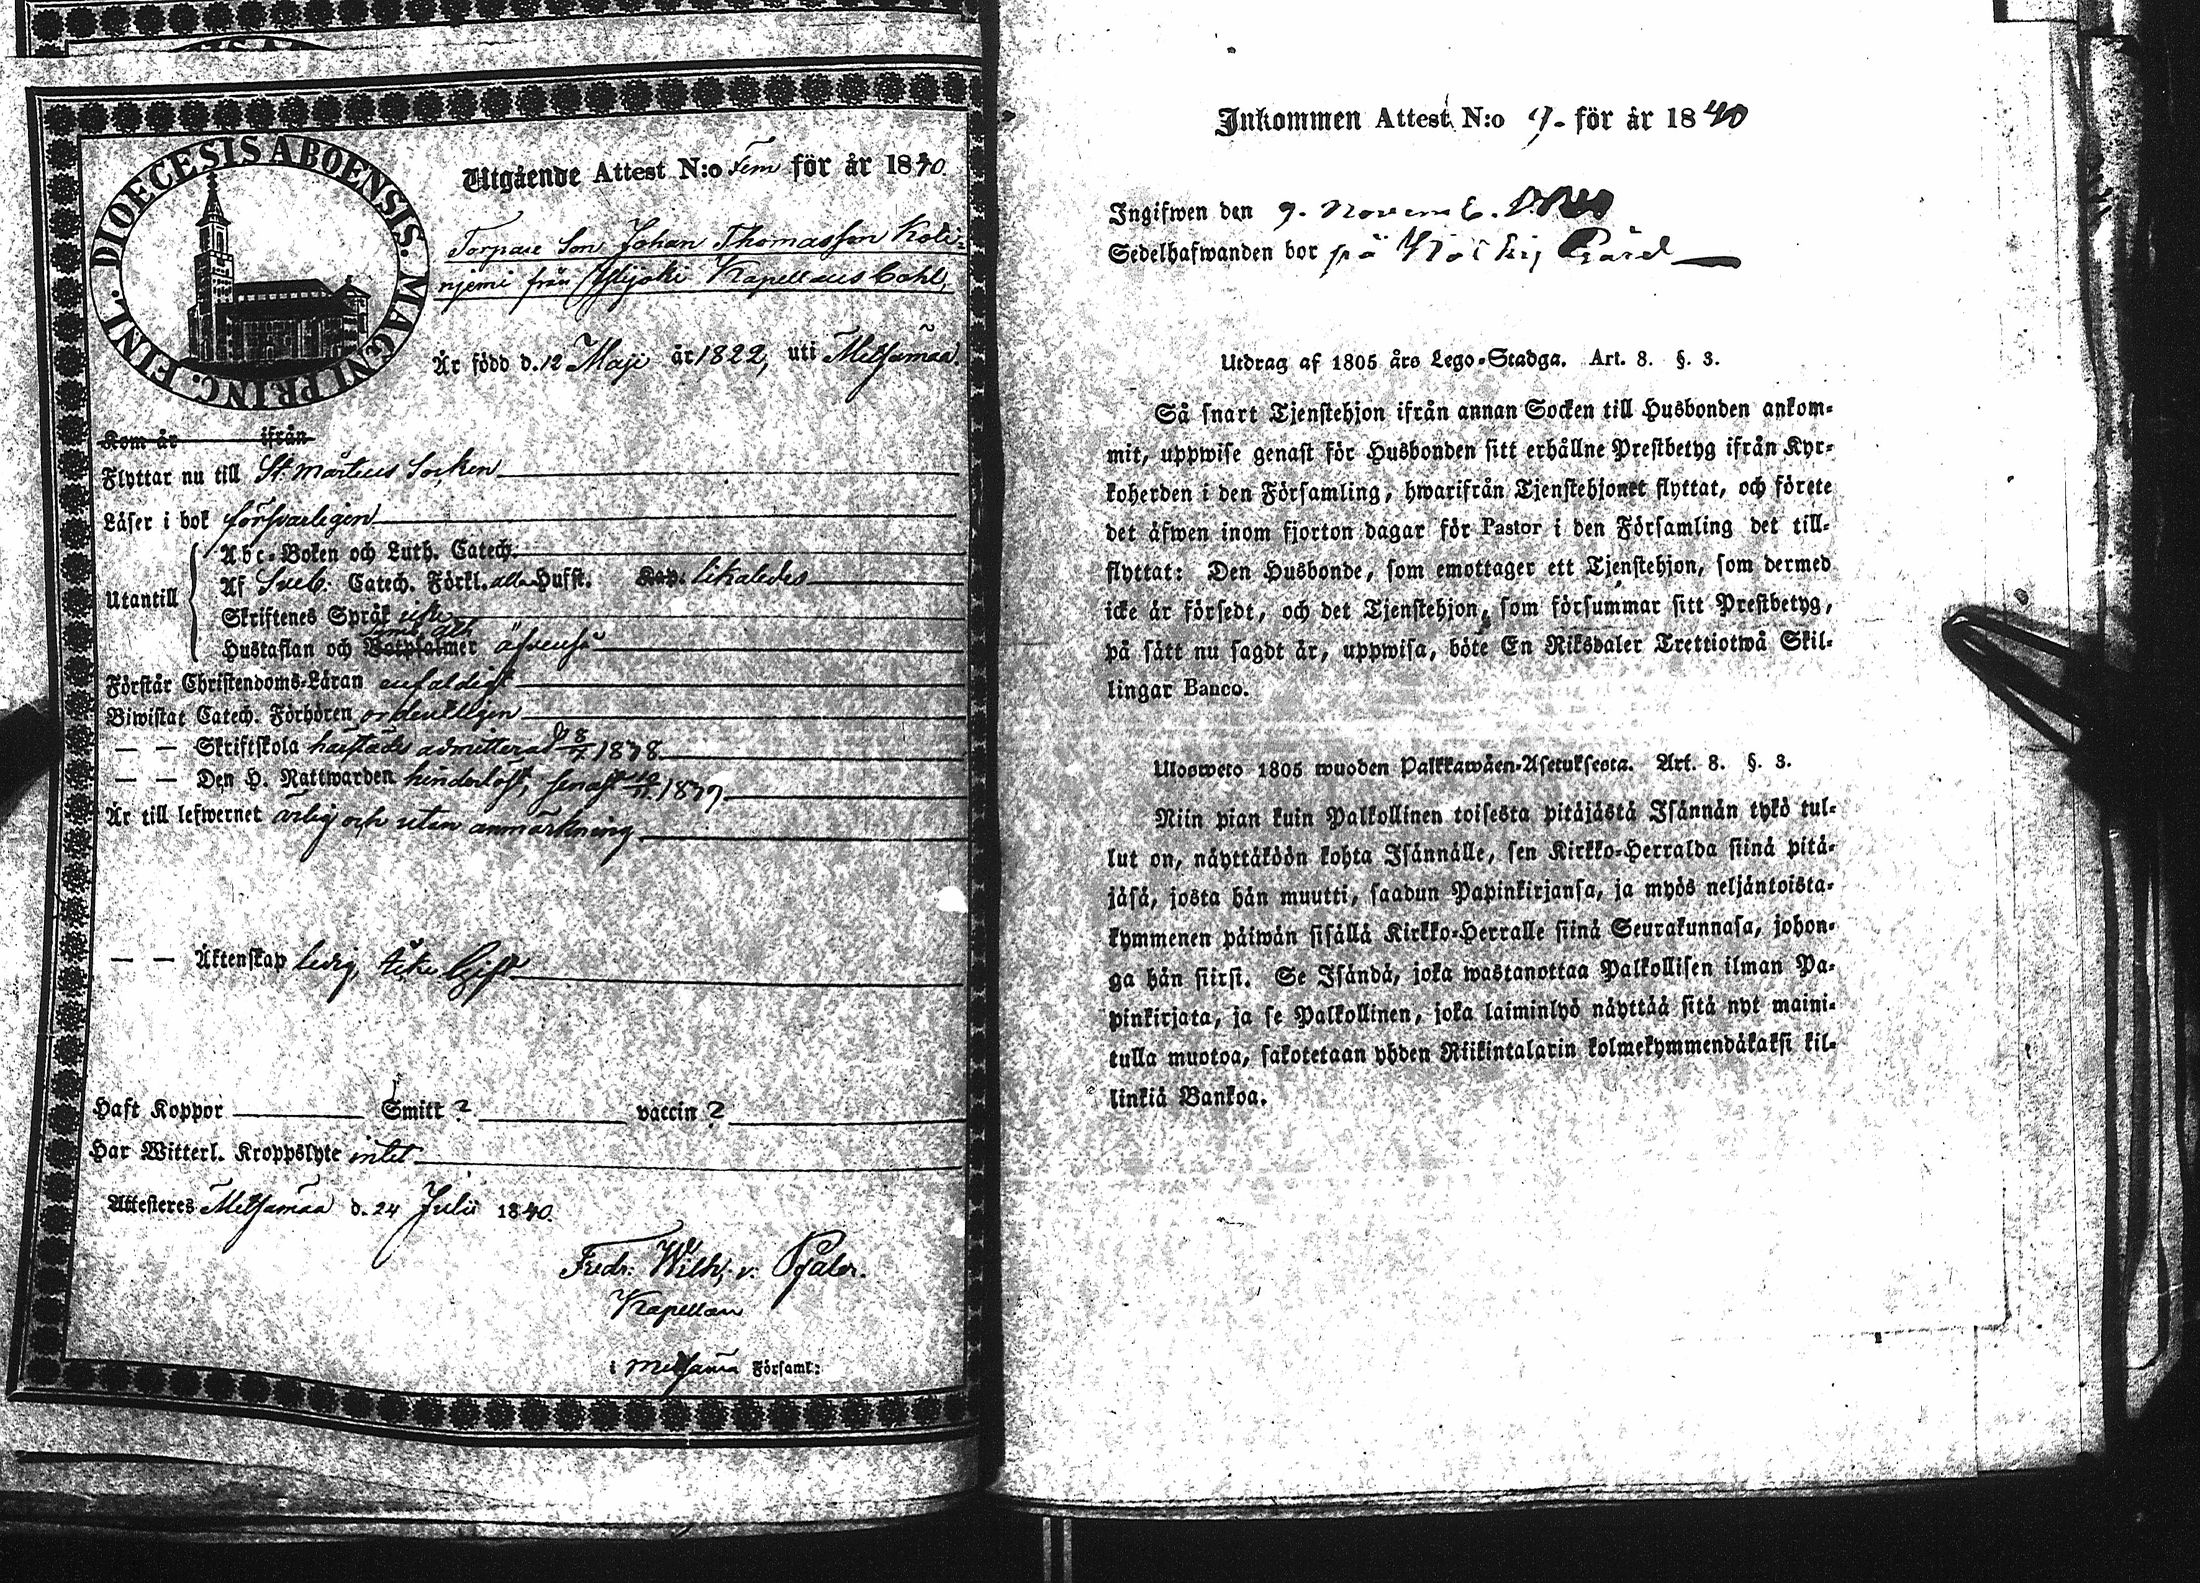 DIOECESIS ABOENSIS. MAGNI PRINC. FINL.
Utgående Attest N:o Fem för år 1840.
Torpare Son Johan Thomasson Koli-
njemi från Kapellans Bohl,
Är född d. 12 Maji år 1822, uti Metsämaa.
Kom år ifrån
Flyttar nu till St. Mårtens Socken
Läser i bok försvarligen
Utantill
Abc-Boken och Luth. Catech.
Af Sveb. Catech. Förkl. alla Hufst. Kap. likaledes
Skriftenes Språk
Hustaflan och Botpsalmer äfvenså
Förstår Christendoms-Läran enfaldigt
Biwistat Catech. Förhören ordentligen
— — Skriftskola härstädes admitterad d 8/7 1838
— — Den H. Nattwarden hinderlöst, senast 1839
Är till lefwernet ärlig och utan anmärkning
— — Äktenskap ledig, icke Gift
Haft Koppor Smitt ? vaccin ?
Har Witterl. Kroppslyte intet
Attesteres Metsämaa d. 24 Julii 1840.
Fredr: Wilh: v. Pfaler.
Kapellan
i Metsämaa Församl:
Inkommen Attest N:o 9. för år 1840
Ingifwen den 9. Novemb.
Sedelhafwanden bor på Gård
Utdrag af 1805 års Lego-Stadga. Art. 8. §. 3.
Så snart Tjenstehjon ifrån annan Socken till Husbonden ankom-
mit, uppwise genast för Husbonden sitt erhållne Prestbetyg ifrån Kyr-
koherden i den Församling, hwarifrån Tjenstehjonet flyttat, och förete
det äfwen inom fjorton dagar för Pastor i den Församling det till-
flyttat: Den Husbonde, som emottager ett Tjenstehjon, som dermed
icke är försedt, och det Tjenstehjon, som försummar sitt Prestbetyg,
på sätt nu sagdt är, uppwisa, böte En Riksdaler Trettiotwå Skil-
lingar Banco.
Ulosweto 1805 wuoden Palkkawäen-Asetuksesta. Art. 8. §. 3.
Niin pian kuin Palkollinen toisesta pitäjästä Isännän tykö tul-
lut on, näyttäköön kohta Isännälle, sen Kirkko-Herralda siinä pitä-
jäsä, josta hän muutti, saadun Papinkirjansa, ja myös neljäntoista-
kymmenen päiwän sisällä Kirkko-Herralle siinä Seurakunnasa, johon-
ga hän siirsi. Se Isändä, joka wastanottaa Palkollisen ilman Pa-
pinkirjata, ja se Palkollinen, joka laiminlyö näyttää sitä nyt maini-
tulla muotoa, sakotetaan yhden Riikintalarin kolmekymmendäkaksi kil-
linkiä Bankoa.